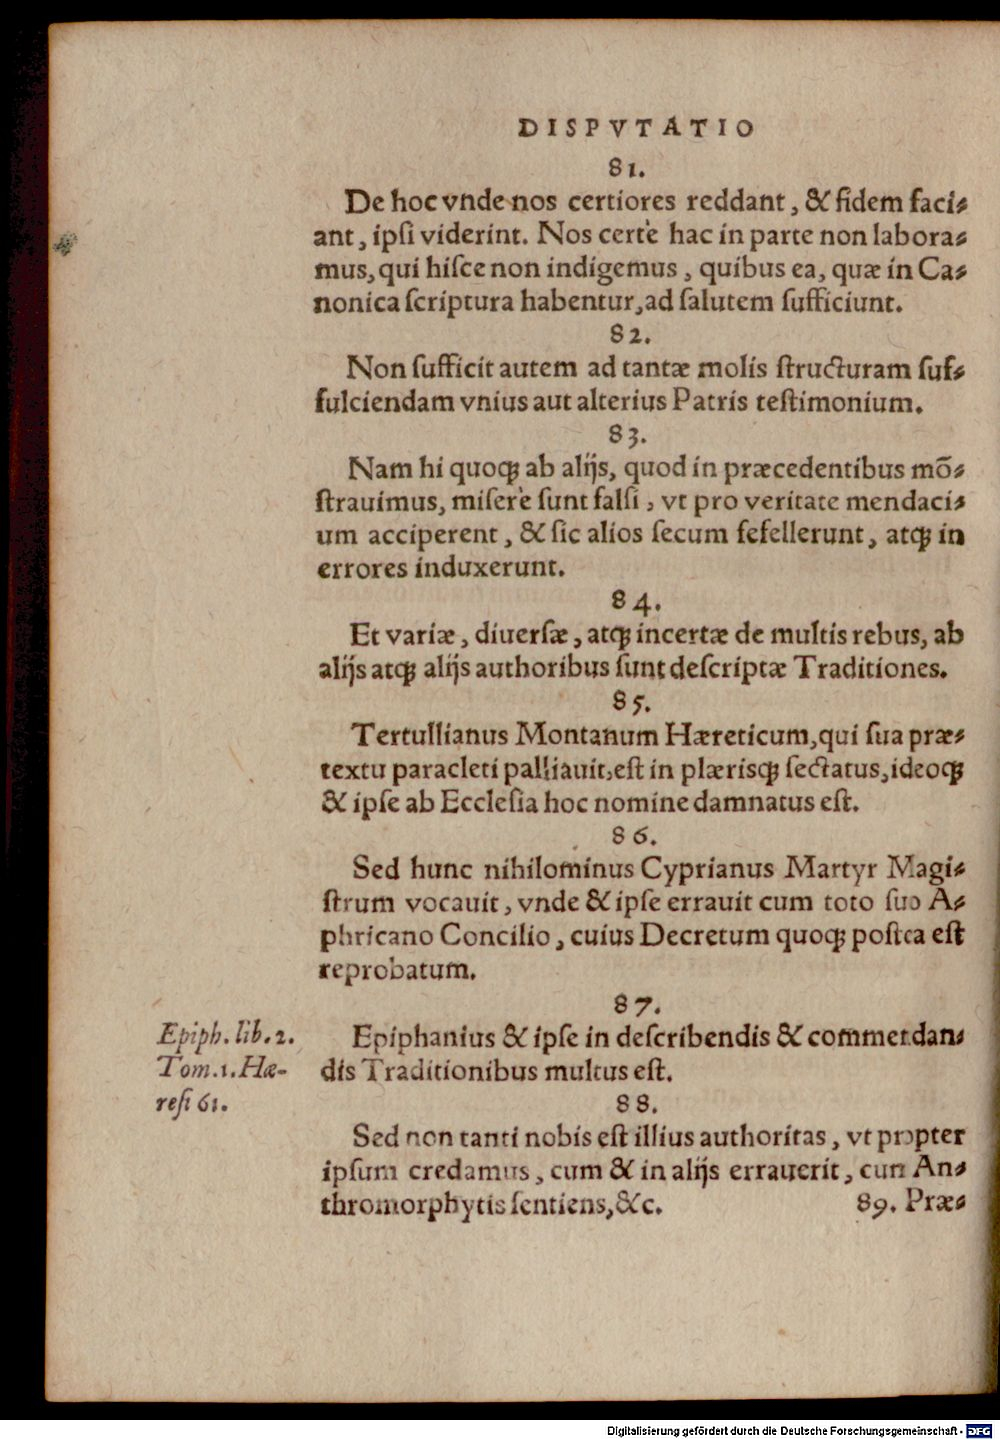 DISPVTATIO
81.
De hoc vnde nos certiores reddant, & fidem faci⸗
ant, ipſi viderint. Nos certè hac in parte non labora⸗
mus, qui hiſce non indigemus, quibus ea, quæ in Ca⸗
nonica ſcriptura habentur, ad ſalutem ſufficiunt.
82.
Non ſufficit autem ad tantæ molis ſtructuram ſuf⸗
fulciendam vnius aut alterius Patris teſtimonium.
83.
Nam hi quoqꝫ ab alijs, quod in præcedentibus mõ⸗
ſtrauimus, miſerè ſunt falſi, vt pro veritate mendaci⸗
um acciperent, & ſic alios ſecum fefellerunt, atqꝫ in
errores induxerunt.
84.
Et variæ, diuerſæ, atqꝫ incertæ de multis rebus, ab
alijs atqꝫ alijs authoribus ſunt deſcriptæ Traditiones.
85.
Tertullianus Montanum Hæreticum, qui ſua præ⸗
textu paracleti palliauit, eſt in plærisqꝫ ſectatus, ideoqꝫ
& ipſe ab Eccleſia hoc nomine damnatus eſt.
86.
Sed hunc nihilominus Cyprianus Martyr Magi⸗
ſtrum vocauit, vnde & ipſe errauit cum toto ſuo A⸗
phricano Concilio, cuius Decretum quoqꝫ poſtea eſt
reprobatum.
87.
Epiph. lib. 2.
Tom. 1. Hæ-
reſi 61.
Epiphanius & ipſe in deſcribendis & commendan⸗
dis Traditionibus multus eſt.
88.
Sed non tanti nobis eſt illius authoritas, vt propter
ipſum credamus, cum & in alijs errauerit, cum An⸗
thromorphytis ſentiens, &c.
89. Præ⸗
Digitalisierung gefördert durch die Deutsche Forschungsgemeinschaft - DFG